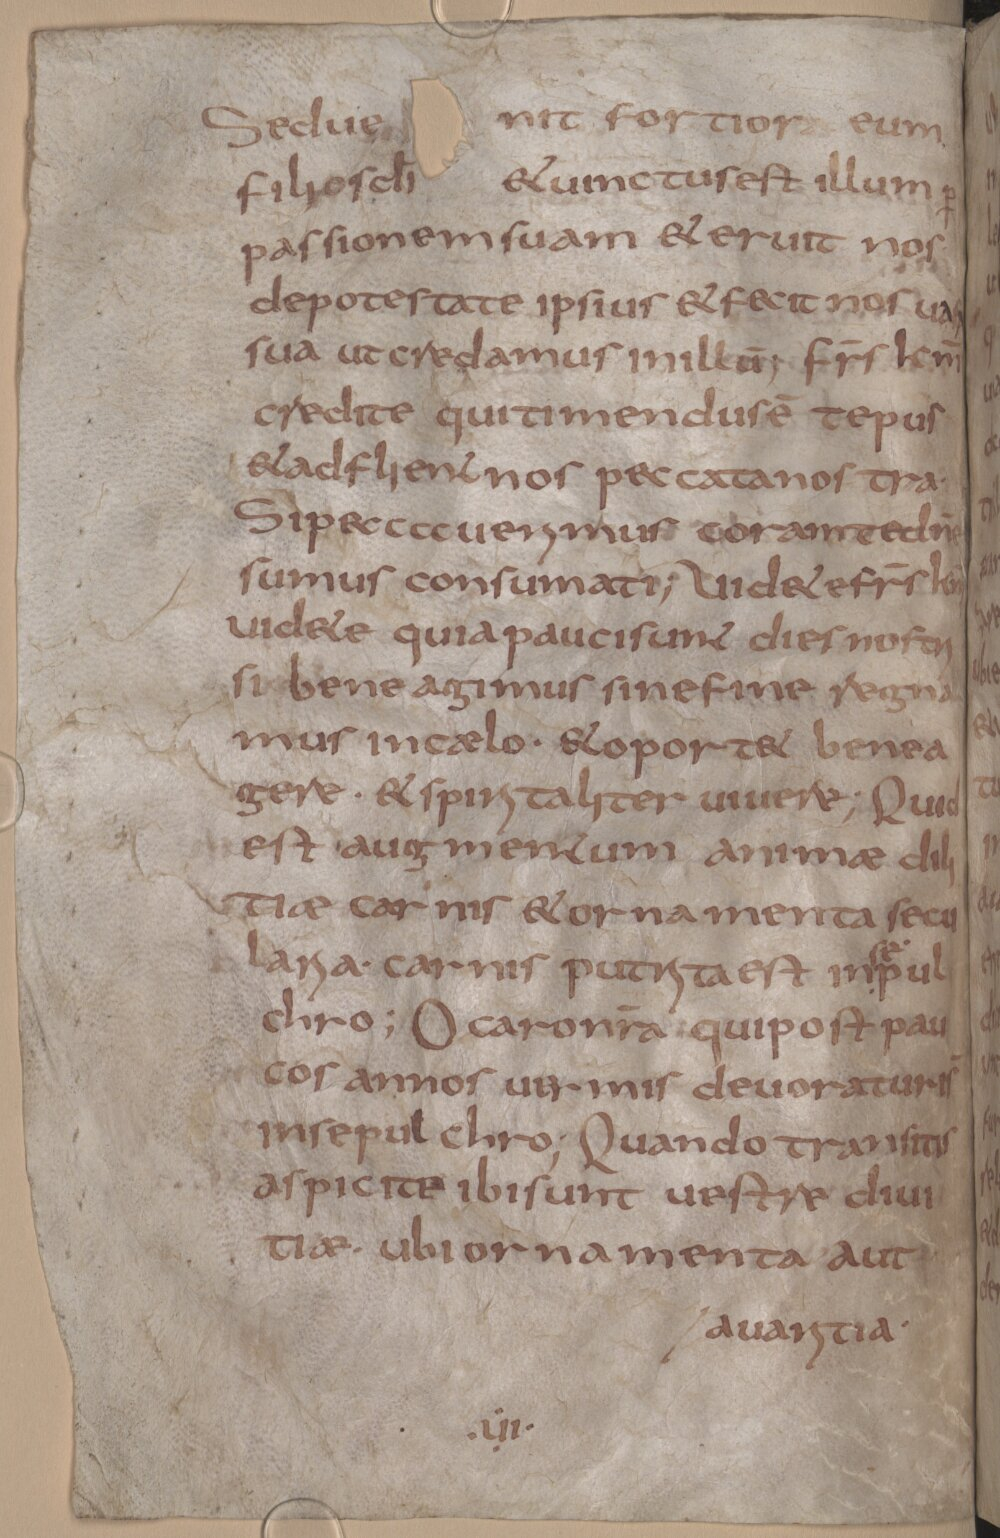 Sedue nit fortior eum
filiosdi &uinctusest illum p
passionemsuam &eruit nos
depotestate ipsius &fecit nos uas
sua utcredamus inillū; fr̄s kr̄mi
credite quitimendusē tepus
&adfligent nos peccatanostra·
Sipecccuerimus corantedn̄e
sumus consumati; Uid&efr̄s
uid&e quiapaucisunt dies nostri
si bene agimus sinefine regna
mus incælo· &oport& benea
gere· &spiritaliter uiuere; Quid
est augmentum animæ dili
tiæ carnis &ornamenta secu
laria· carnis putritaest insepul
chro; O caro nr̄a quipost pau
cos annos uermis deuoraturis
insepulchro; Quando transitis
aspicite ibisunt uestre diui
tiæ· ubiornamenta aut
auaritia·
·iii·